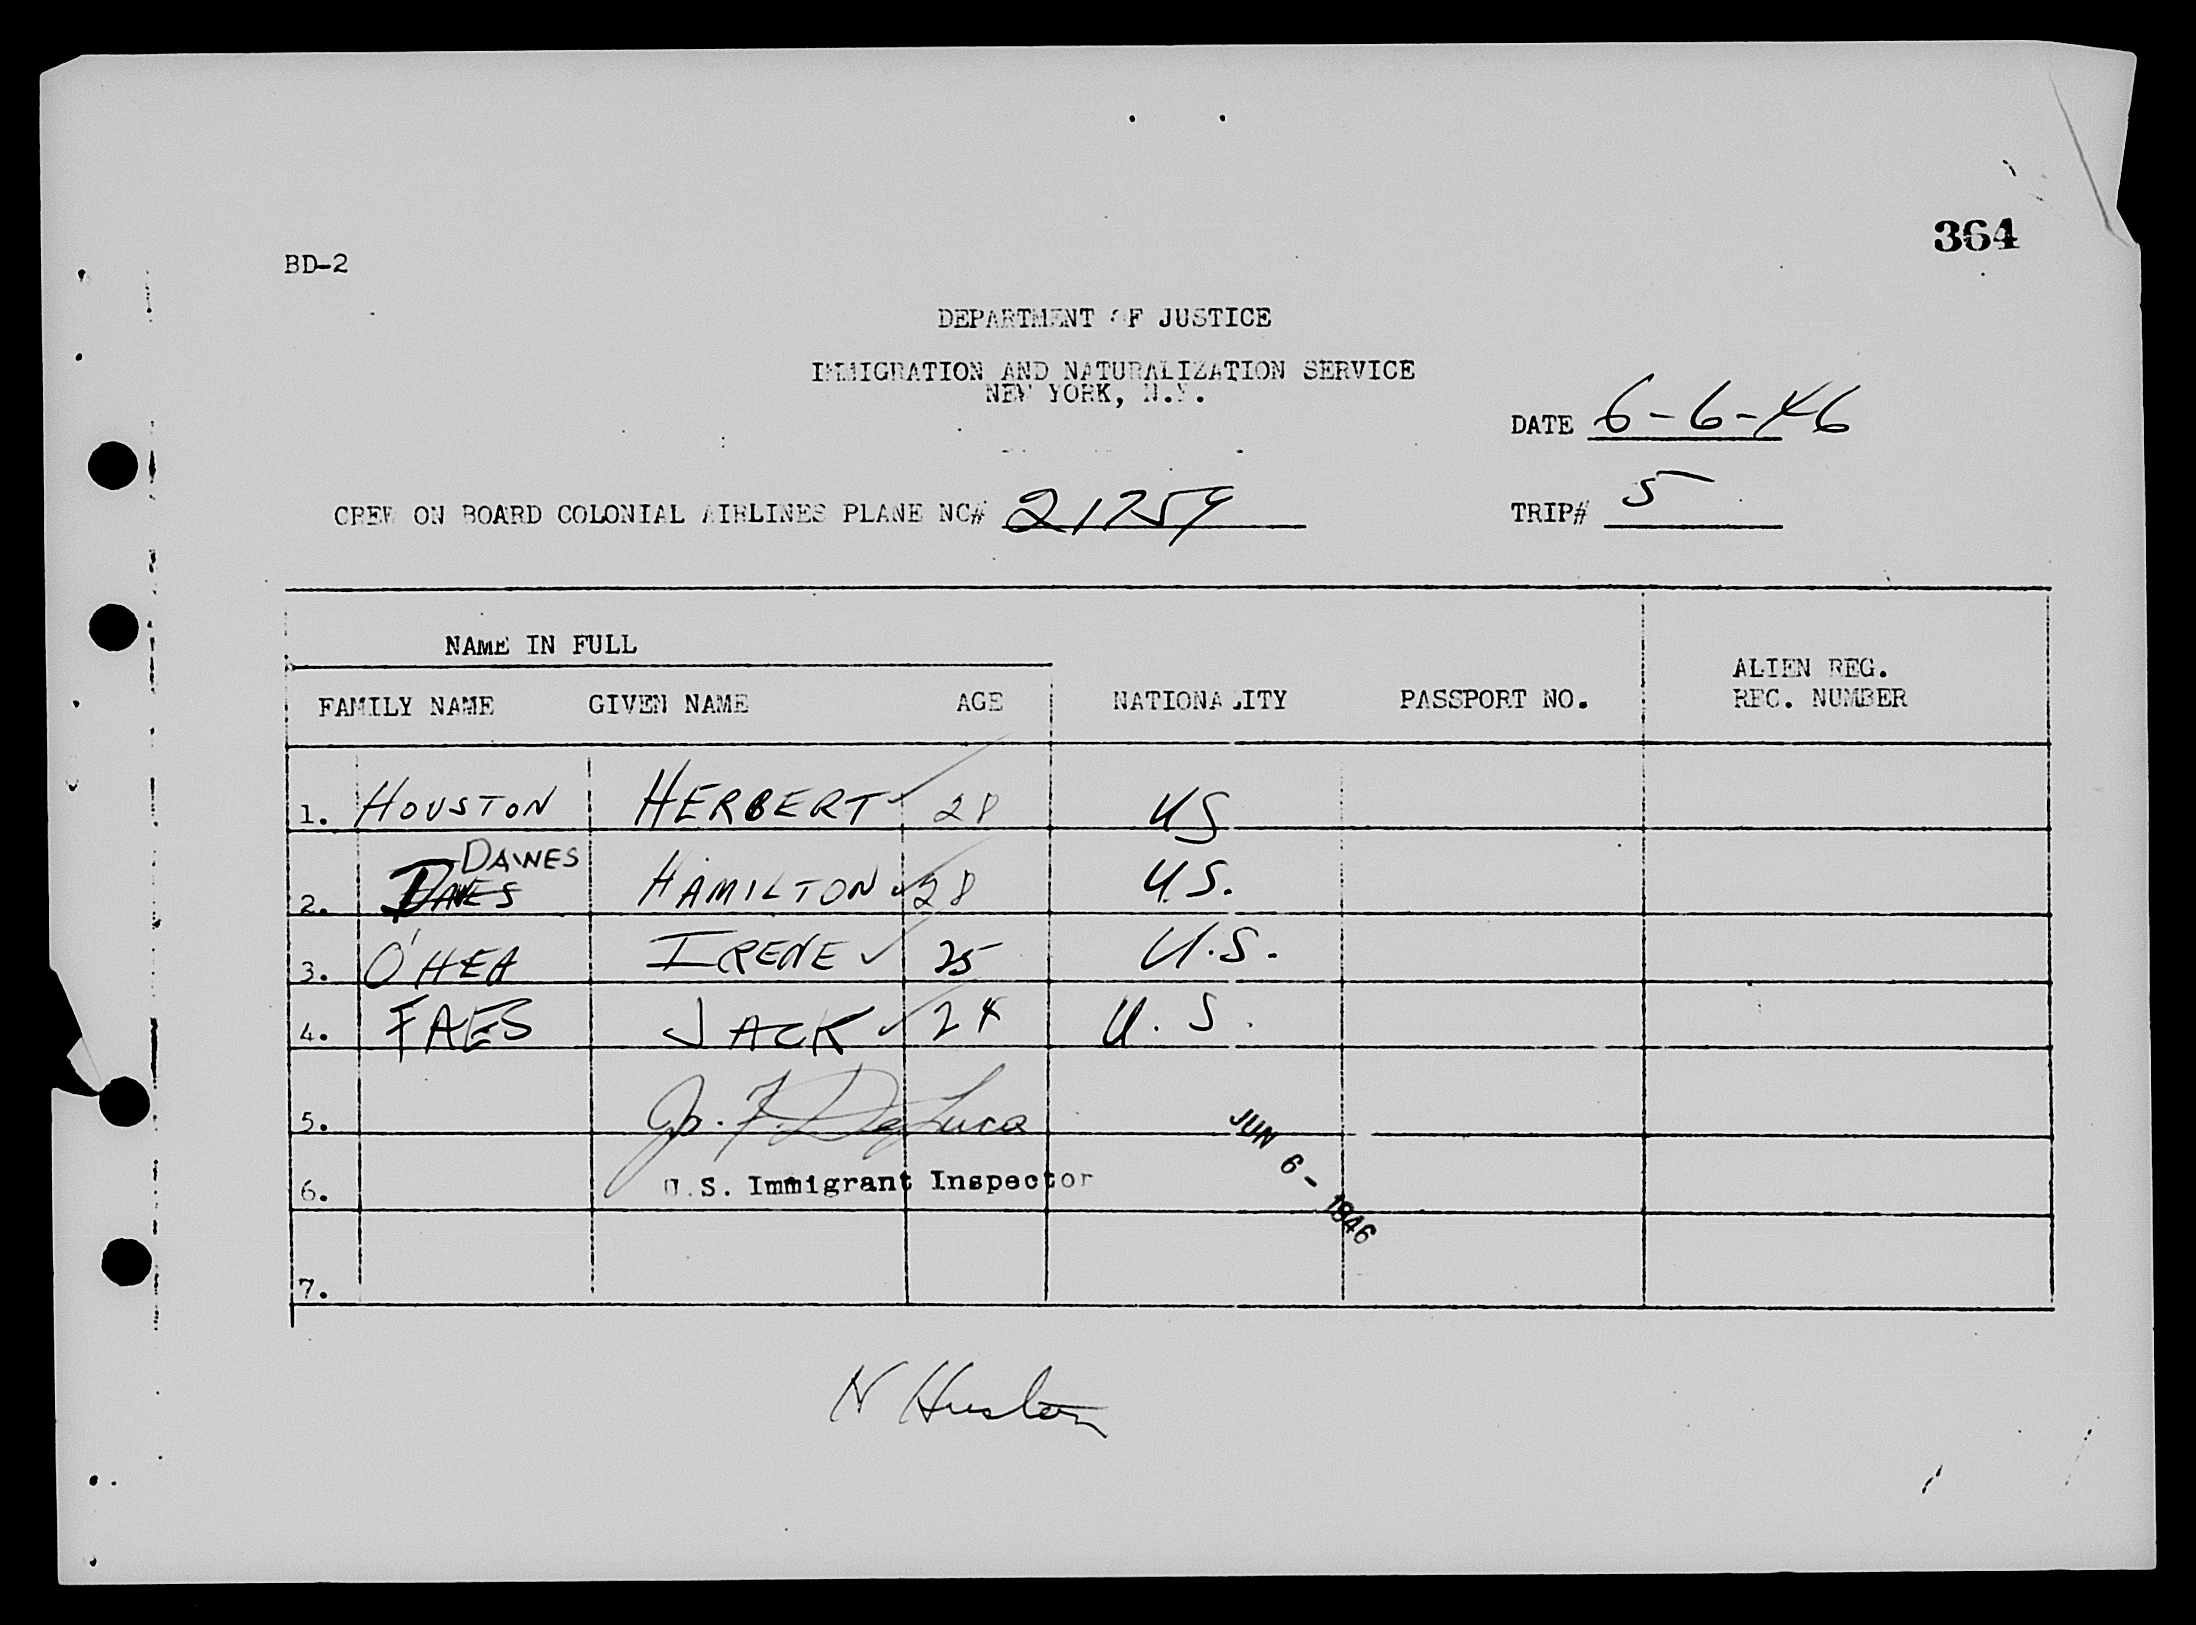 364
BD-2
DEPARTMENT OF JUSTICE
IMMIGRATION AND NATURALIZATION SERVICE
NEW YORK, N.Y.
DATE 6-6-46
CREW ON BOARD COLONIAL AIRLINES PLANE NC# 21759
TRIP# 5
NAME IN FULL
FAMILY NAME GIVEN NAME AGE NATIONALITY PASSPORT NO. ALIEN REG. REC. NUMBER
1. HOUSTON HERBERT ✓ 28 US
DAWES
2. DAWES HAMILTON ✓ 28 U.S.
3. O'HEA IRENE ✓ 25 U.S.
4. FAES JACK ✓ 24 U.S.
5. Jp. F. DeLuca
6. U.S. Immigrant Inspector
JUN 6 - 1946
7.
H Huston